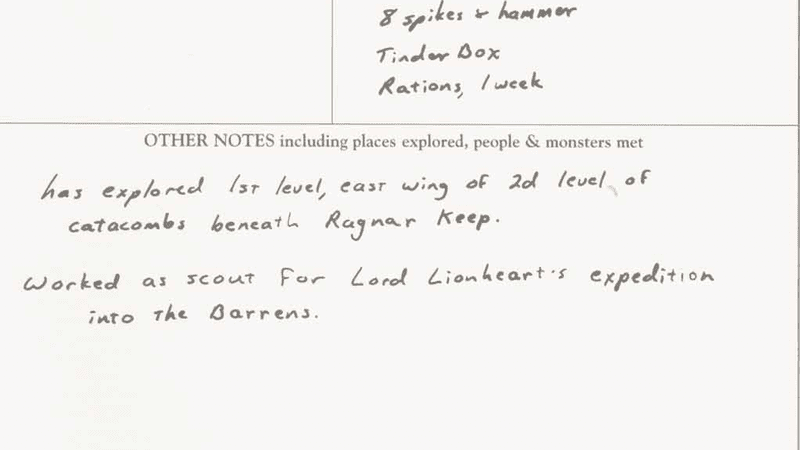 8 spikes & hammer
Tinder Box
Rations, 1 week
OTHER NOTES including places explored, people & monsters met
has explored 1st level, east wing of 2d level of
catacombs beneath Ragnar Keep.
Worked as scout for Lord Lionheart's expedition
into the Barrens.